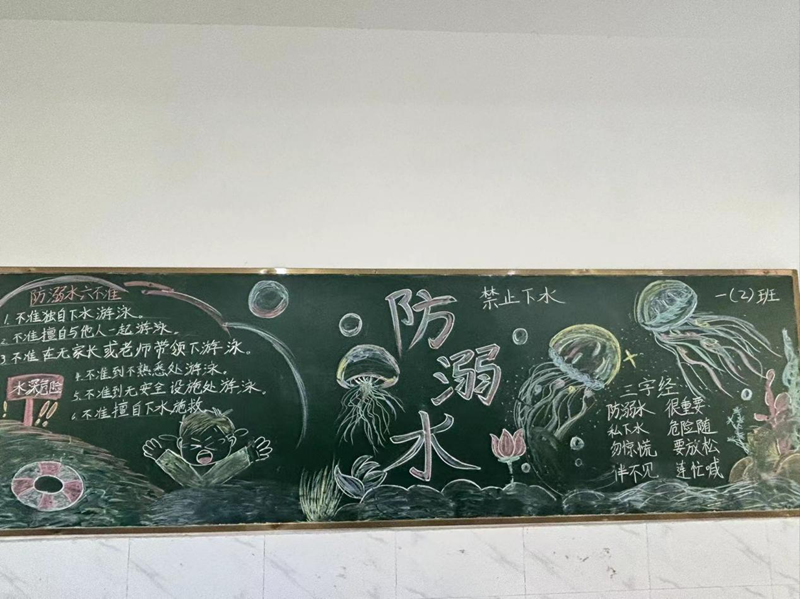 防溺水六不准
1.不准独自下水游泳。
2.不准擅自与他人一起游泳。
3.不准在无家长或老师带领下游泳。
4.不准到不熟悉处游泳。
5.不准到无安全设施处游泳。
6.不准擅自下水施救。
水深危险
防溺水
禁止下水
一(2)班
三字经
防溺水 很重要
私下水 危险随
勿惊慌 要放松
伴不见 连忙喊